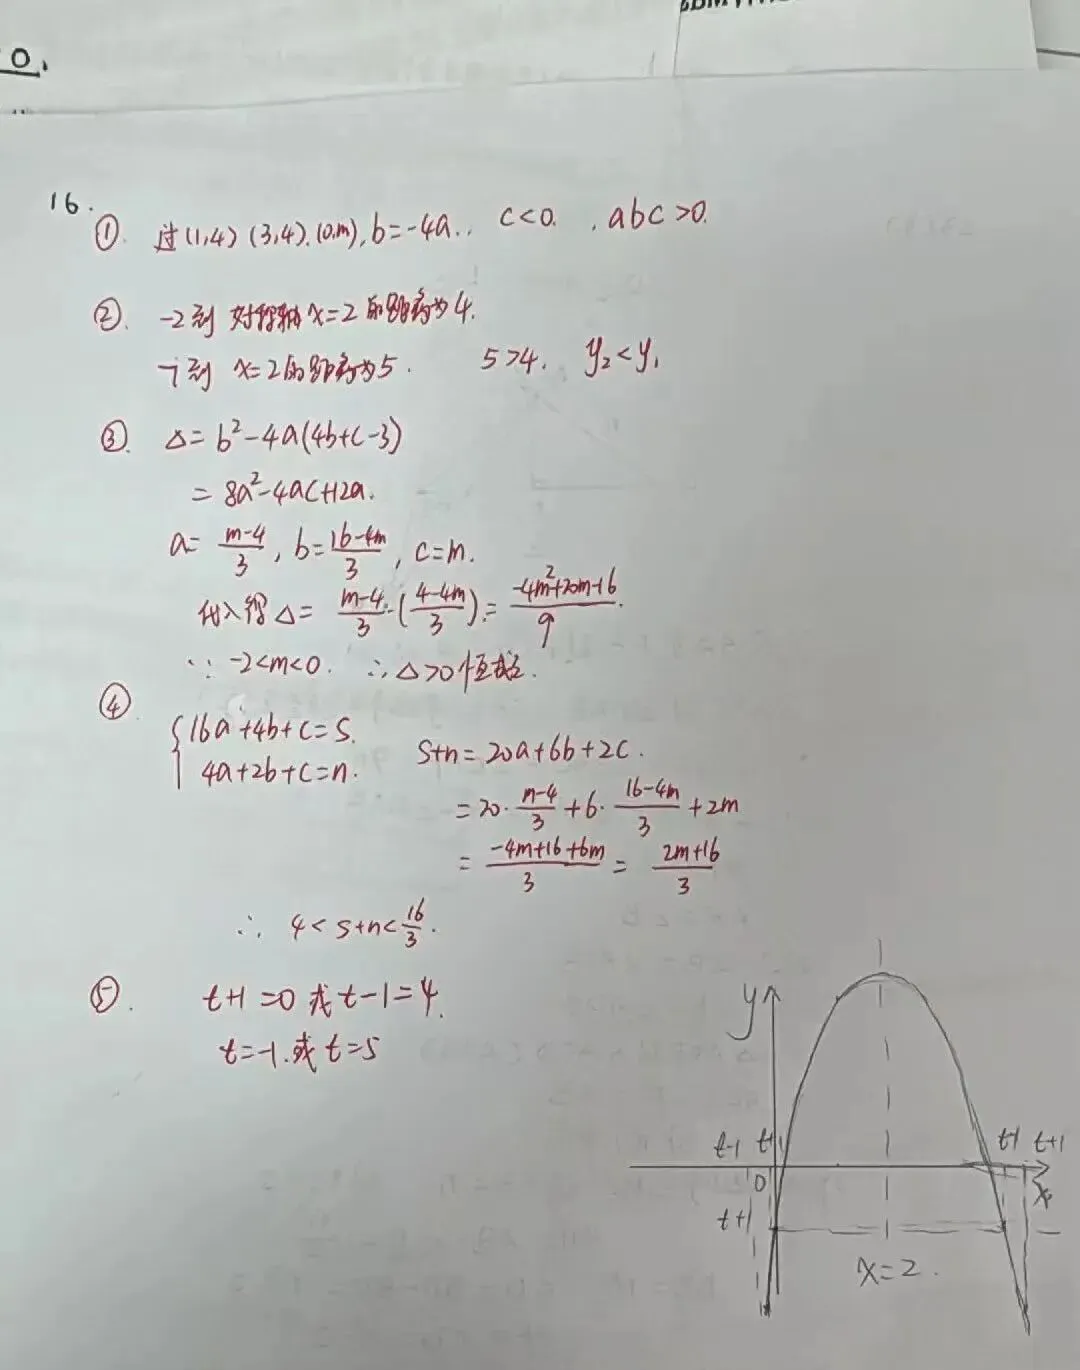 0.
16.
① 过(1,4) (3,4).(0,m), b=-4a., c<0. , abc>0.
② -2到 对称轴x=2的距离为4.
7到 x=2的距离为5. 5>4. y₂<y₁
③ △=b²-4a(4b+c-3)
=8a²-4ac+12a.
a=\frac{m-4}{3}, b=\frac{16-4m}{3}, c=m.
代入得△= \frac{m-4}{3}·(\frac{4-4m}{3})=\frac{-4m²+20m-16}{9}.
∵ -2<m<0. ∴△>0恒成立.
④ {16a+4b+c=s.
4a+2b+c=n. s+n=20a+6b+2c.
=20·\frac{m-4}{3}+6·\frac{16-4m}{3}+2m
=\frac{-4m+16+6m}{3}=\frac{2m+16}{3}
∴ 4<s+n<\frac{16}{3}.
⑤. t+1=0或t-1=4.
t=-1.或t=5
y
t-1 t+1 t-1 t+1
0 x
t+1
x=2.